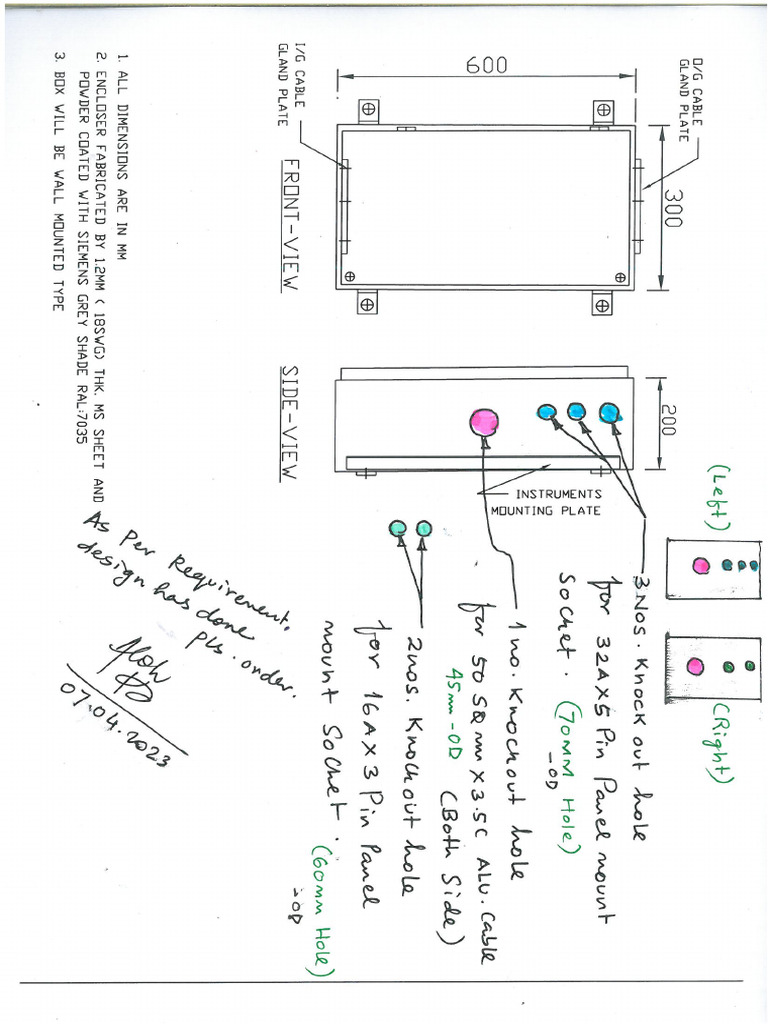 O/G CABLE
GLAND PLATE
600
300
I/G CABLE
GLAND PLATE
FRONT-VIEW
200
SIDE-VIEW
INSTRUMENTS
MOUNTING PLATE
(Left)
(Right)
3 Nos. Knock out hole
for 32A X 5 Pin Panel mount
Socket. (70MM Hole)
-OD
1 no. Knockout hole
for 50 SQ mm X 3.5C ALU. Cable
45mm-OD (Both Side)
2 nos. Knockout hole
for 16A X 3 Pin Panel
mount Socket. (60mm Hole)
-OD
1. ALL DIMENSIONS ARE IN MM
2. ENCLOSER FABRICATED BY 1.2MM ( 18SWG) THK. MS SHEET AND
POWDER COATED WITH SIEMENS GREY SHADE RAL:7035
3. BOX WILL BE WALL MOUNTED TYPE
As Per Requirement.
design has done
Pls. order.
07.04.2023